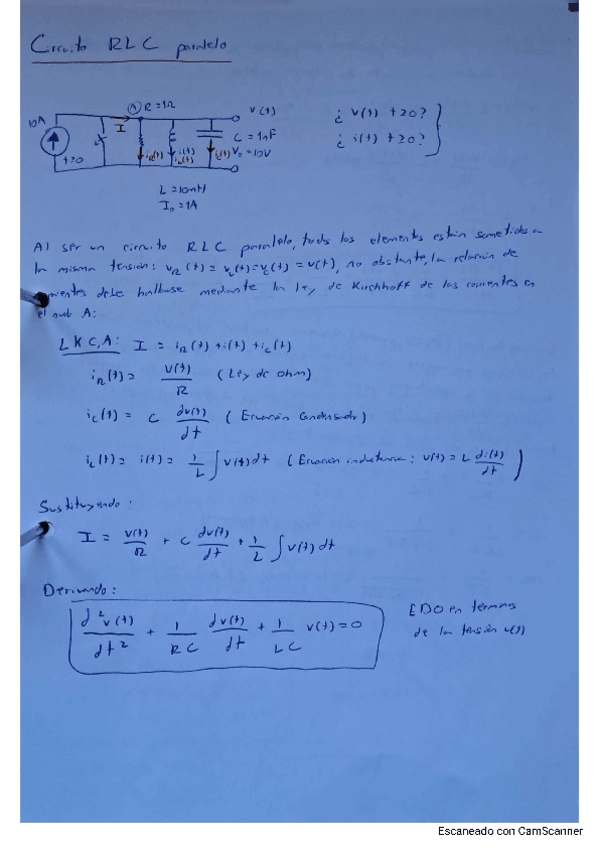 Circuito RLC paralelo
10A
I
t≥0
A R=1Ω
iR(t)
i(t)
iL(t)
ic(t)
v(t)
C = 1nF
V0 = 10V
L = 10mH
I0 = 1A
¿ v(t) t≥0?
¿ i(t) t≥0?
Al ser un circuito RLC paralelo, todos los elementos están sometidos a
la misma tensión: vR(t) = vL(t) = vc(t) = v(t), no obstante, la relación de
corrientes debe hallarse mediante la ley de Kirchhoff de las corrientes en
el nudo A:
LKC,A: I = iR(t) + i(t) + ic(t)
iR(t) = v(t)/R (Ley de Ohm)
ic(t) = C dv(t)/dt (Ecuación Condensador)
iL(t) = i(t) = 1/L ∫ v(t) dt (Ecuación inductancia: v(t) = L di(t)/dt)
Sustituyendo:
I = v(t)/R + C dv(t)/dt + 1/L ∫ v(t) dt
Derivando:
d²v(t)/dt² + 1/RC dv(t)/dt + 1/LC v(t) = 0
EDO en términos
de la tensión v(t)
Escaneado con CamScanner